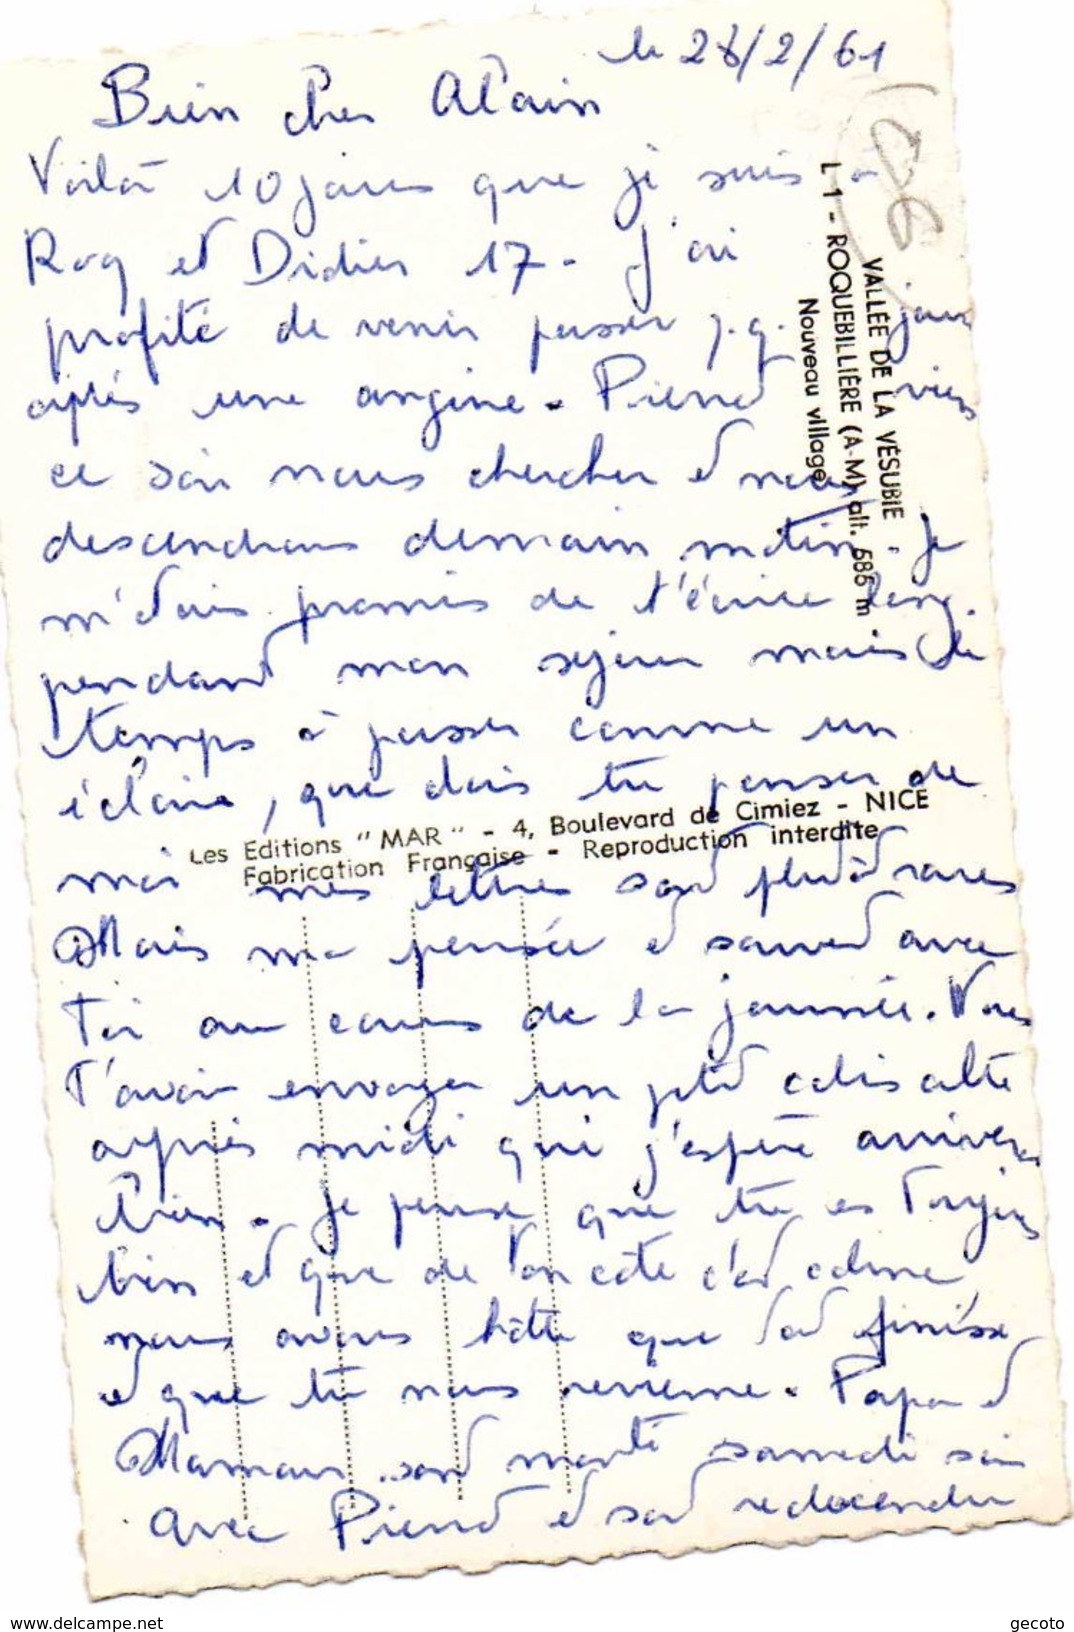 le 28/2/61
Bien cher Alain
Voilà 10 jours que je suis à
Roq et Didier 17. J'ai
profité de venir passer q.q. jours
après une angine. Pierrot viens
ce soir nous chercher et nous
descendrons demain matin. Je
m'étais promis de t'écrire long.
pendant mon séjour mais le
temps à passer comme un
éclair, que dois tu penser de
moi mes lettres sont plutôt rares
Mais ma pensée et souvent avec
Toi au cours de la journée. Vous
T'avoir envoyer un ptit colis cette
après midi qui j'espère arrivera
bien. Je pense que tu es toujours
bien et que de ton côté c'est calme,
nous avons hâte que ça finisse
et que tu nous revienne. Papa et
Maman sont monté samedi soir
avec Pierrot et sont redescendu
VALLÉE DE LA VÉSUBIE
L 1 - ROQUEBILLIÈRE (A-M) alt. 585 m
Nouveau village
Les Editions "MAR" - 4, Boulevard de Cimiez - NICE
Fabrication Française - Reproduction interdite
www.delcampe.net
gecoto